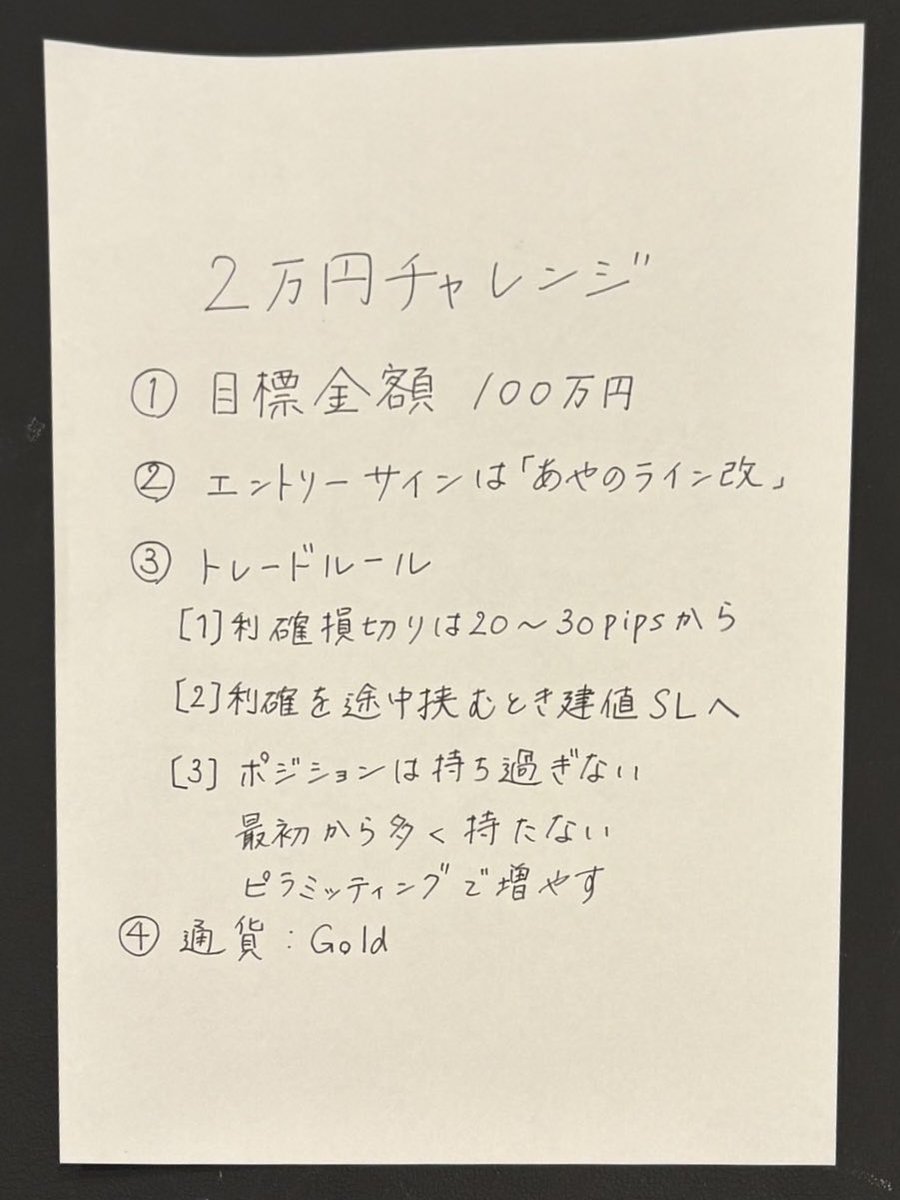 2万円チャレンジ
① 目標金額 100万円
② エントリーサインは「あやのライン改」
③ トレードルール
[1]利確損切りは20〜30pipsから
[2]利確を途中挟むとき建値SLへ
[3] ポジションは持ち過ぎない
最初から多く持たない
ピラミッティングで増やす
④ 通貨:Gold